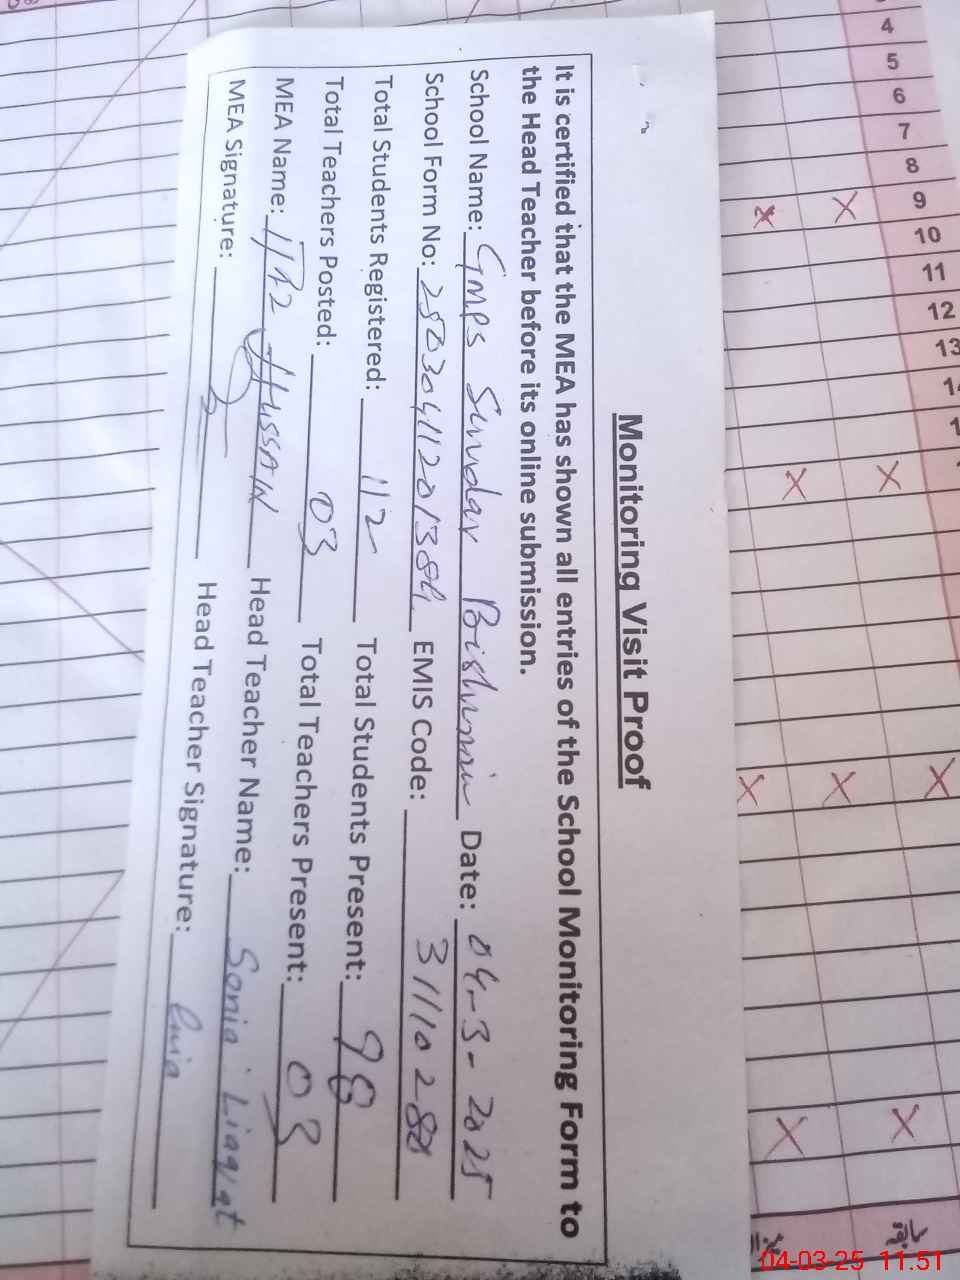 Monitoring Visit Proof
It is certified that the MEA has shown all entries of the School Monitoring Form to
the Head Teacher before its online submission.
School Name: GMPS Sundar Bishnain Date: 04-3-2025
School Form No: EMIS Code: 31110280
Total Students Registered: 112 Total Students Present: 98
Total Teachers Posted: 03 Total Teachers Present: 03
MEA Name: Hussain Head Teacher Name: Sonia Liaqat
MEA Signature: Head Teacher Signature:
4
5
6
7
8
9
10
11
12
13
04-03-25 11:51